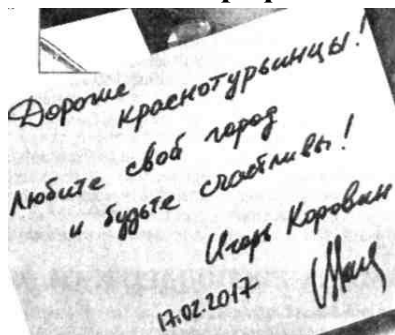 Дорогие
краснотурьинцы!
Любите свой город
и будьте счастливы!
Игорь Коровин
17.02.2017